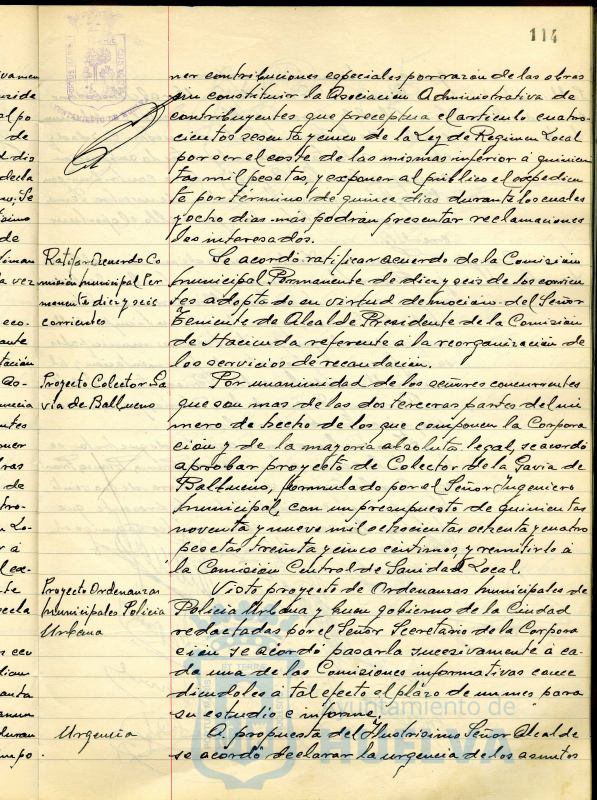 114
ner contribuciones especiales por razón de las obras
sin constituir la Asociación Administrativa de
contribuyentes que preceptua el artículo cuatro-
cientos sesenta y cinco de la Ley de Regimen Local
por ser el coste de las mismas inferior á quinien
tas mil pesetas, y exponer al público el expedien
te por término de quince días durante los cuales
y ocho días mas podran presentar reclamaciones
los interesados.
Ratificar acuerdo Co
misión municipal Per
manente diez y seis
corrientes
Se acordó ratificar acuerdo de la Comisión
Municipal Permanente de diez y seis de los corrien
tes adoptado en virtud de moción del Señor
Teniente de Alcalde Presidente de la Comisión
de Hacienda referente a la reorganización de
los servicios de recaudación.
Proyecto Colector Ga
via de Balbueno
Por unanimidad de los señores concurrentes
que son mas de las dos terceras partes del nú
mero de hecho de los que componen la Corpora
ción y de la mayoria absoluta legal, se acordó
aprobar proyecto de Colector de la Gavia de
Balbueno, formulado por el Señor Ingeniero
Municipal, con un presupuesto de quinientas
noventa y nueve mil ochocientas ochenta y cuatro
pesetas treinta y cinco centimos, y remitirlo á
la Comisión Central de Sanidad Local.
Proyecto Ordenanzas
Municipales Policia
Urbana
Visto proyecto de Ordenanzas Municipales de
Policia Urbana y buen gobierno de la Ciudad
redactadas por el Señor Secretario de la Corpora
ción se acordó pasarla sucesivamente á ca-
da una de las Comisiones informativas conce
diendoles a tal efecto el plazo de un mes para
su estudio é informe.
Urgencia
A propuesta del Ilustrisimo Señor Alcalde
se acordó declarar la urgencia de los asuntos
Ayuntamiento de
HUELVA